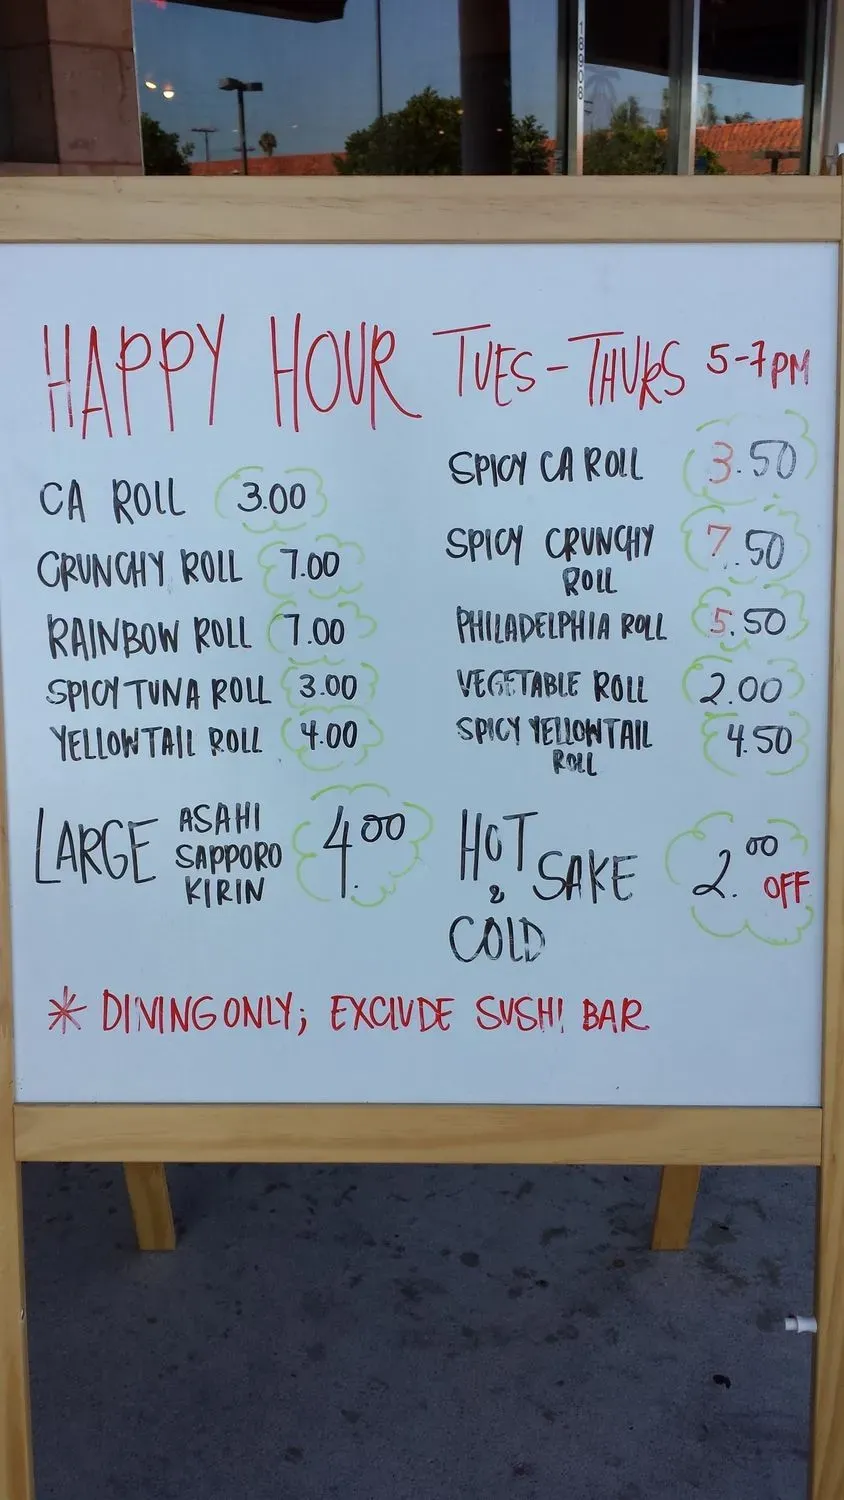 18908
HAPPY HOUR TUES-THURS 5-7PM
CA ROLL 3.00
CRUNCHY ROLL 7.00
RAINBOW ROLL 7.00
SPICY TUNA ROLL 3.00
YELLOWTAIL ROLL 4.00
SPICY CA ROLL 3.50
SPICY CRUNCHY 7.50
ROLL
PHILADELPHIA ROLL 5.50
VEGETABLE ROLL 2.00
SPICY YELLOWTAIL 4.50
ROLL
LARGE ASAHI 4.00
SAPPORO
KIRIN
HOT SAKE 2.00 OFF
&
COLD
* DINING ONLY; EXCLUDE SUSHI BAR